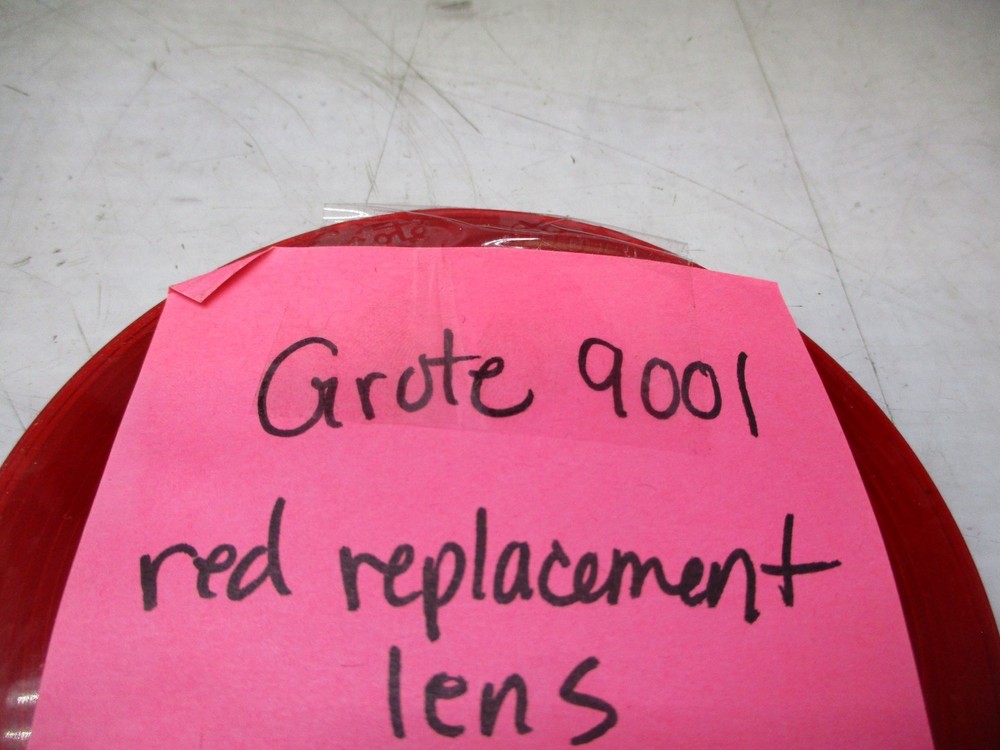 Grote
Grote 9001
red replacement
lens